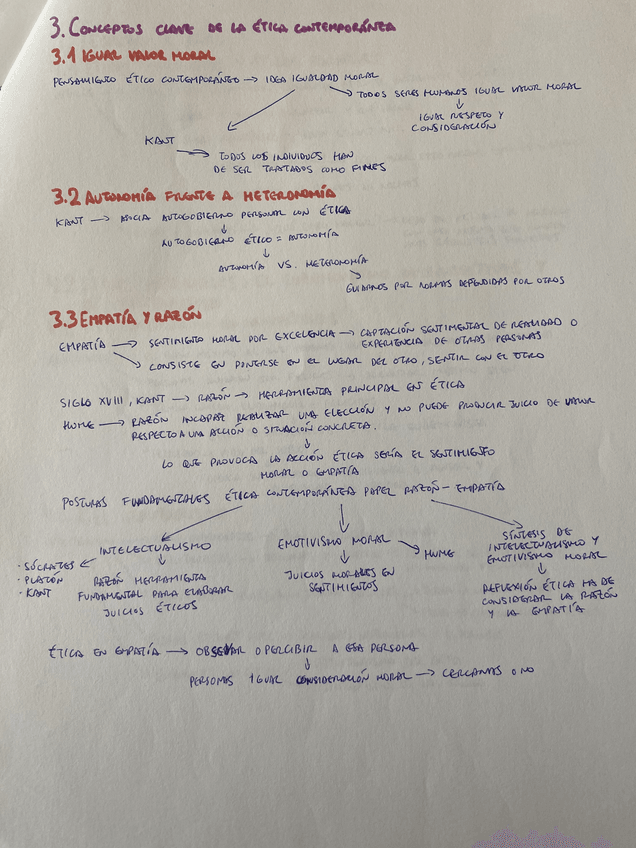 3. CONCEPTOS CLAVE DE LA ÉTICA CONTEMPORÁNEA
3.1 IGUAL VALOR MORAL
PENSAMIENTO ÉTICO CONTEMPORÁNEO → IDEA IGUALDAD MORAL
→ TODOS SERES HUMANOS IGUAL VALOR MORAL
↓
IGUAL RESPETO Y
CONSIDERACIÓN
KANT
→ TODOS LOS INDIVIDUOS HAN
DE SER TRATADOS COMO FINES
3.2 AUTONOMÍA FRENTE A HETERONOMÍA
KANT → ASOCIA AUTOGOBIERNO PERSONAL CON ÉTICA
↓
AUTOGOBIERNO ÉTICO = AUTONOMÍA
↓
AUTONOMÍA VS. HETERONOMÍA
GUIARNOS POR NORMAS DEFENDIDAS POR OTROS
3.3 EMPATÍA Y RAZÓN
EMPATÍA → SENTIMIENTO MORAL POR EXCELENCIA → CAPTACIÓN SENTIMENTAL DE REALIDAD O
EXPERIENCIA DE OTRAS PERSONAS
→ CONSISTE EN PONERSE EN EL LUGAR DEL OTRO, SENTIR CON EL OTRO
SIGLO XVIII, KANT → RAZÓN → HERRAMIENTA PRINCIPAL EN ÉTICA
HUME → RAZÓN INCAPAZ REALIZAR UNA ELECCIÓN Y NO PUEDE PRODUCIR JUICIO DE VALOR
RESPECTO A UNA ACCIÓN O SITUACIÓN CONCRETA.
↓
LO QUE PROVOCA LA ACCIÓN ÉTICA SERÍA EL SENTIMIENTO
MORAL O EMPATÍA
POSTURAS FUNDAMENTALES ÉTICA CONTEMPORÁNEA PAPEL RAZÓN - EMPATÍA
INTELECTUALISMO
· SÓCRATES
· PLATÓN
· KANT
RAZÓN HERRAMIENTA
FUNDAMENTAL PARA ELABORAR
JUICIOS ÉTICOS
EMOTIVISMO MORAL
→ HUME
↓
JUICIOS MORALES EN
SENTIMIENTOS
SÍNTESIS DE
INTELECTUALISMO Y
EMOTIVISMO MORAL
↓
REFLEXIÓN ÉTICA HA DE
CONSIDERAR LA RAZÓN
Y LA EMPATÍA
ÉTICA EN EMPATÍA → OBSERVAR O PERCIBIR A ESA PERSONA
↓
PERSONAS IGUAL CONSIDERACIÓN MORAL → CERCANAS O NO